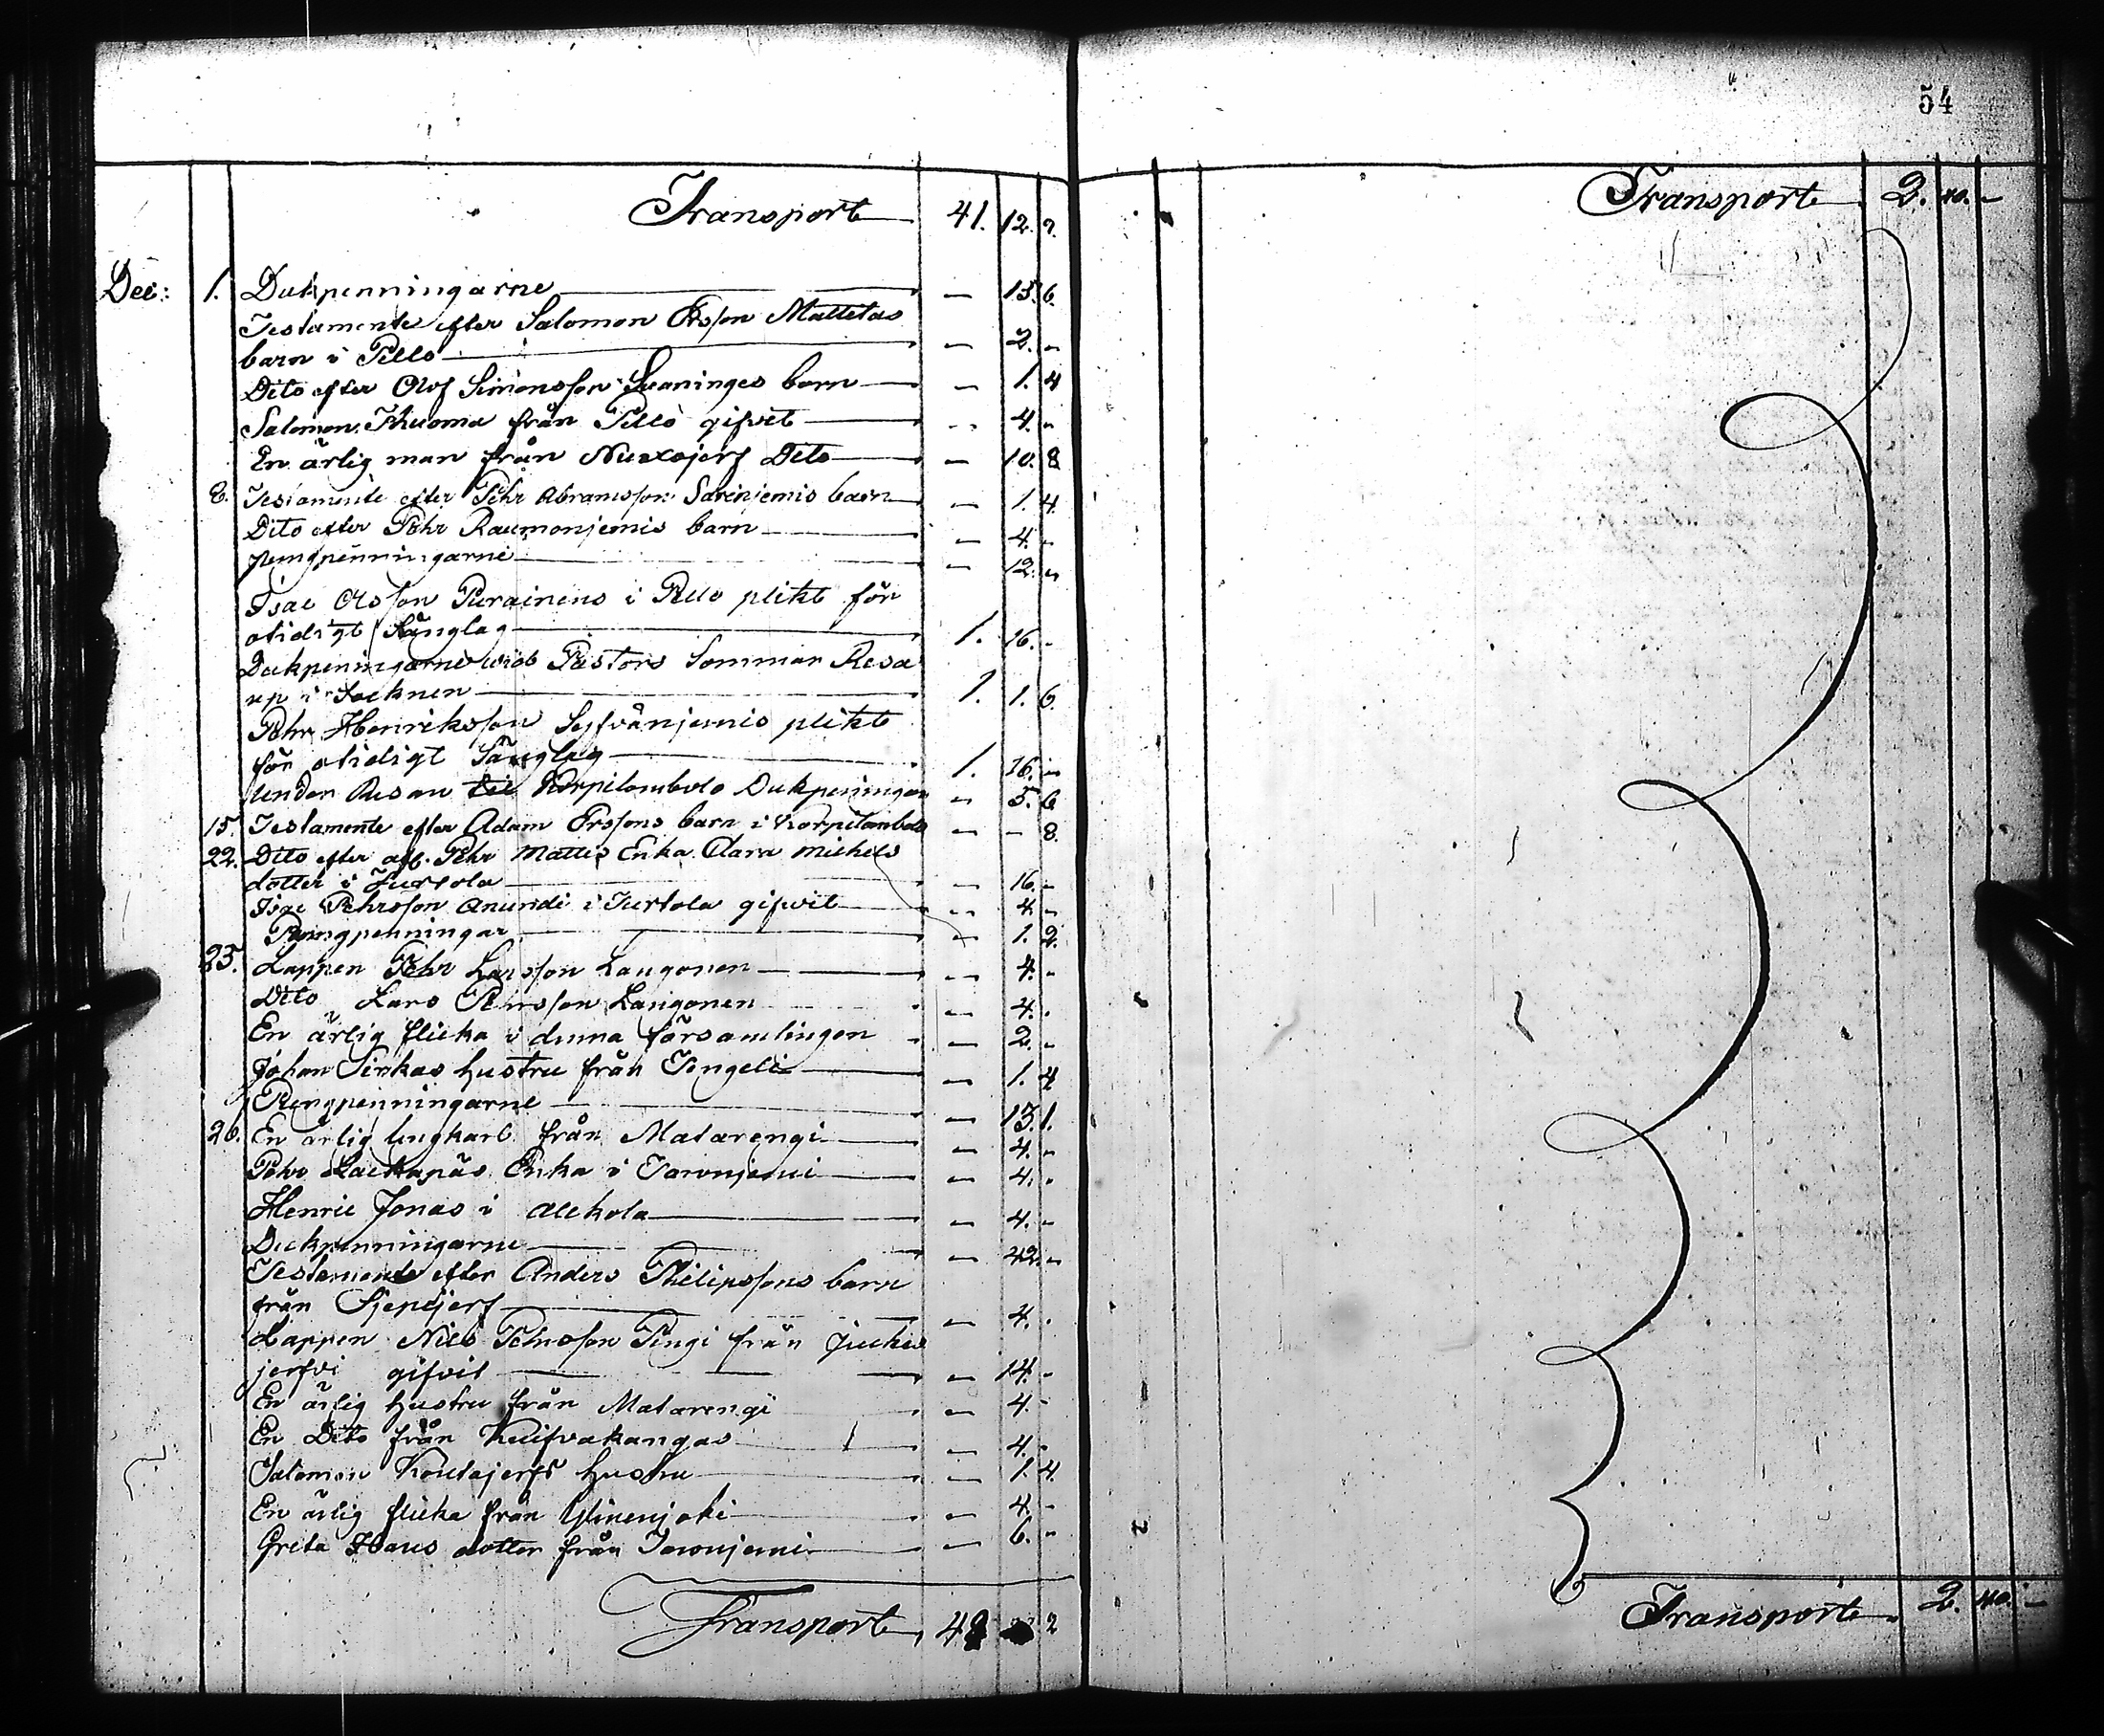 54
Transport 41. 12. 2.
Dec: 1. Dukpenningarne — 15. 6.
Testamente efter Salomon Ersson Mattetas
barn i Pello — 2. –
Dito efter Olof Simonsson Lvaninges barn — 1. 4
Salomon Thuoma från Pello gifvit — 4. –
En ärlig man från Nuoxojerf Dito — 10. 8
8. Testamente efter Pehr Abramsson Sarenjemis barn — 1. 4.
Dito efter Pehr Raumonjemis barn — 4. –
pungpenningarne — 12. –
Isac Olsson Purainens i Pello plikt för
otidigt Sänglag 1. 16. –
Dukpeningarne wid Pastors Sommar Resa
up i Socknen 1. 1. 6.
Pehr Henriksson plikt
för otidigt Sänglag 1. 16. –
under Resan till Korpilombolo Dukpeningar — 5. 6
15. Testamente efter Adam Erssons barn i Korpilombolo — – 8.
22. Dito efter afl. Pehr Mattis Enka Clara Michels
dotter i Turtola — 16. –
Isac Pehrsson Anundi i Turtola gifvit — 4. –
Pungpenningar — 1. 2.
25. Lappen Pehr Larsson Langonen — 4. –
Dito Lars Pehrsson Langonen — 4. –
En ärlig flicka i denna församlingen — 2. –
Johan Sirkas hustru från Tengeli — 1. 4
Pungpenningarne — 13. 1.
26. En ärlig ungkarl från Matarengi — 4. –
Pehr Lackapäs Enka i Toronjemi — 4. –
Henric Jonas i Alckola — 4. –
Duckpenningarne — 42. –
Testamente efter Anders Philipssons barn
från — 4. –
Lappen Nils Pehrsson Pingi från Juckas
jerfvi gifvit — 14. –
En ärlig hustru från Matarengi — 4. –
En Dito från Kuifvakangas — 4. –
Salomon Koutajerfs hustru — 1. 4.
En ärlig flicka från Ylinenjoki — 4. –
Greta Hans dotter från Toronjemi — 6. –
Transport 2
Transport 2. 40. –
Transport 2. 40. –